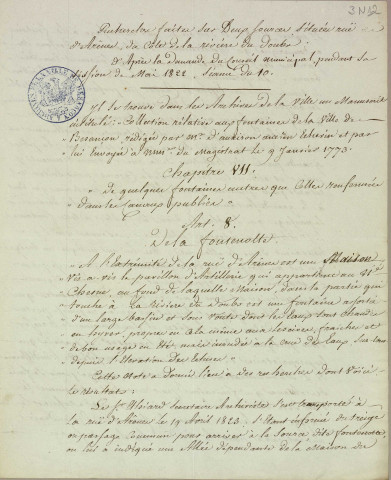 2 N 52
Recherches faites sur Deux sources situées rue
d'Arènes, du côté de la rivière du Doubs.
D'Après la Demande du Conseil municipal pendant sa
session de Mai 1822, séance du 10.
Il se trouve dans les Archives de la ville un Manuscrit
intitulé: Collection relative aux fontaines de la Ville de
Besançon rédigée par Mr. d'auxiron ancien échevin et par
lui Envoyé à Mrs. du Magistrat le 9 Janvier 1773.
Chapitre VII.
De quelques fontaines autres que Celles renfermées
dans les places publiques
Art. 8.
De la fontenotte.
A l'Extrémité de la rue d'Arène est une Maison
vis à vis le pavillon d'Artillerie qui appartient au Sr.
Chesne, au fond de laquelle Maison, dans la partie qui
touche à la Rivière du doubs est une fontaine assortie
d'un large bassin et sous voute dont les Eaux sont abondantes
en hiver, propre on a la même aux lessives, fraiche et
de bon usage en Eté, mais inondée à la crue des Eaux
depuis l'Elevation des Ecluses
Cette Note a donné lieu à des recherches dont Voici
le résultat:
Le Sr. secrétaire Archiviste s'est transporté à
la rue d'Arènes le 19 Avril 1823. S'Etant informé du
ou passage Commun pour arriver à la Source dite fontenotte,
on lui a indiqué une Allée dépendante de la Maison du